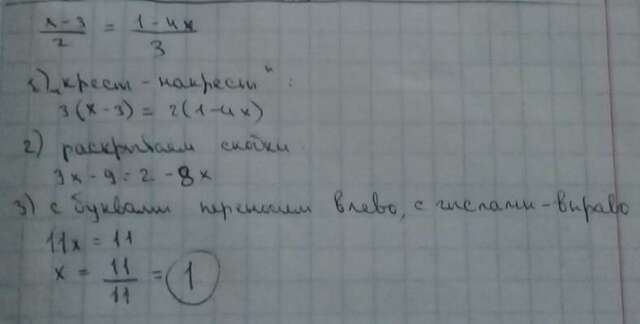 x-3/2 = 1-4x/3
1) „крест-накрест":
3(x-3) = 2(1-4x)
2) раскрываем скобки
3x-9=2-8x
3) с буквами переносим влево, с числами-вправо
11x = 11
x = 11/11 = 1